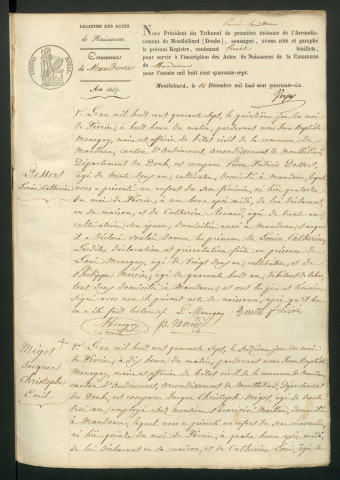 REGISTRE DES ACTES
de Naissance.
Commune
de Mandeure
An 1847.
Nous Président du Tribunal de première instance de l'Arrondissement
de Montbéliard (Doubs), soussigné, avons côté et paraphé
le présent Registre, contenant feuillets,
pour servir à l'inscription des Actes de Naissances de la Commune
de Mandeure
pour l'année mil huit cent quarante-sept.
Montbéliard, le 15 Décembre mil huit cent quarante-six.
Louise Catherine
1.° L'an mil huit cent quarante sept, le quinzième jour du mois
de Février, à huit heures du matin, pardevant nous Jean Baptiste
Menegay, maire et officier de l'état civil de la commune de
Mandeure, canton d'Audincourt, arrondissement de Montbéliard,
Département du Doubs, est comparu Pierre Frédéric
âgé de trente deux ans, cultivateur, domicilié à Mandeure, lequel
nous a présenté un enfant du sexe féminin, né hier quatorze
du mois de Février, à une heure après midi, de lui déclarant,
en sa maison, et de Catherine Renaud, âgée de trente ans,
cultivatrice, son épouse, domiciliée aussi à Mandeure, et auquel
il a déclaré vouloir donner les prénoms de Louise Catherine,
lesdites déclaration et présentation faites en présence de
Louis Menegay, âgé de vingt deux ans, cultivateur, et de
Philippe Mercier, âgé de quarante huit ans, débitant de tabac,
tous deux domiciliés à Mandeure, et ont les père et témoins
signé avec nous le présent acte de naissance, après qu'il leur
en a été fait lecture. L. Menegay
Menegay P. Mercier
Migot
Jacques
Christophe
Emil
2.° L'an mil huit cent quarante sept, le seizième jour du mois
de Février, à dix heures du matin, pardevant nous Jean Baptiste
Menegay, maire et officier de l'état civil de la commune de Mandeure
canton d'Audincourt, arrondissement de Montbéliard, Département
du Doubs, est comparu Jacque Christophe Migot, âgé de trente
trois ans, employé chez Monsieur domicilié
à Mandeure, lequel nous a présenté un enfant du sexe masculin,
né hier quinze du mois de Février, à quatre heures après midi,
de lui déclarant en sa maison, et de Catherine Louis, âgée de